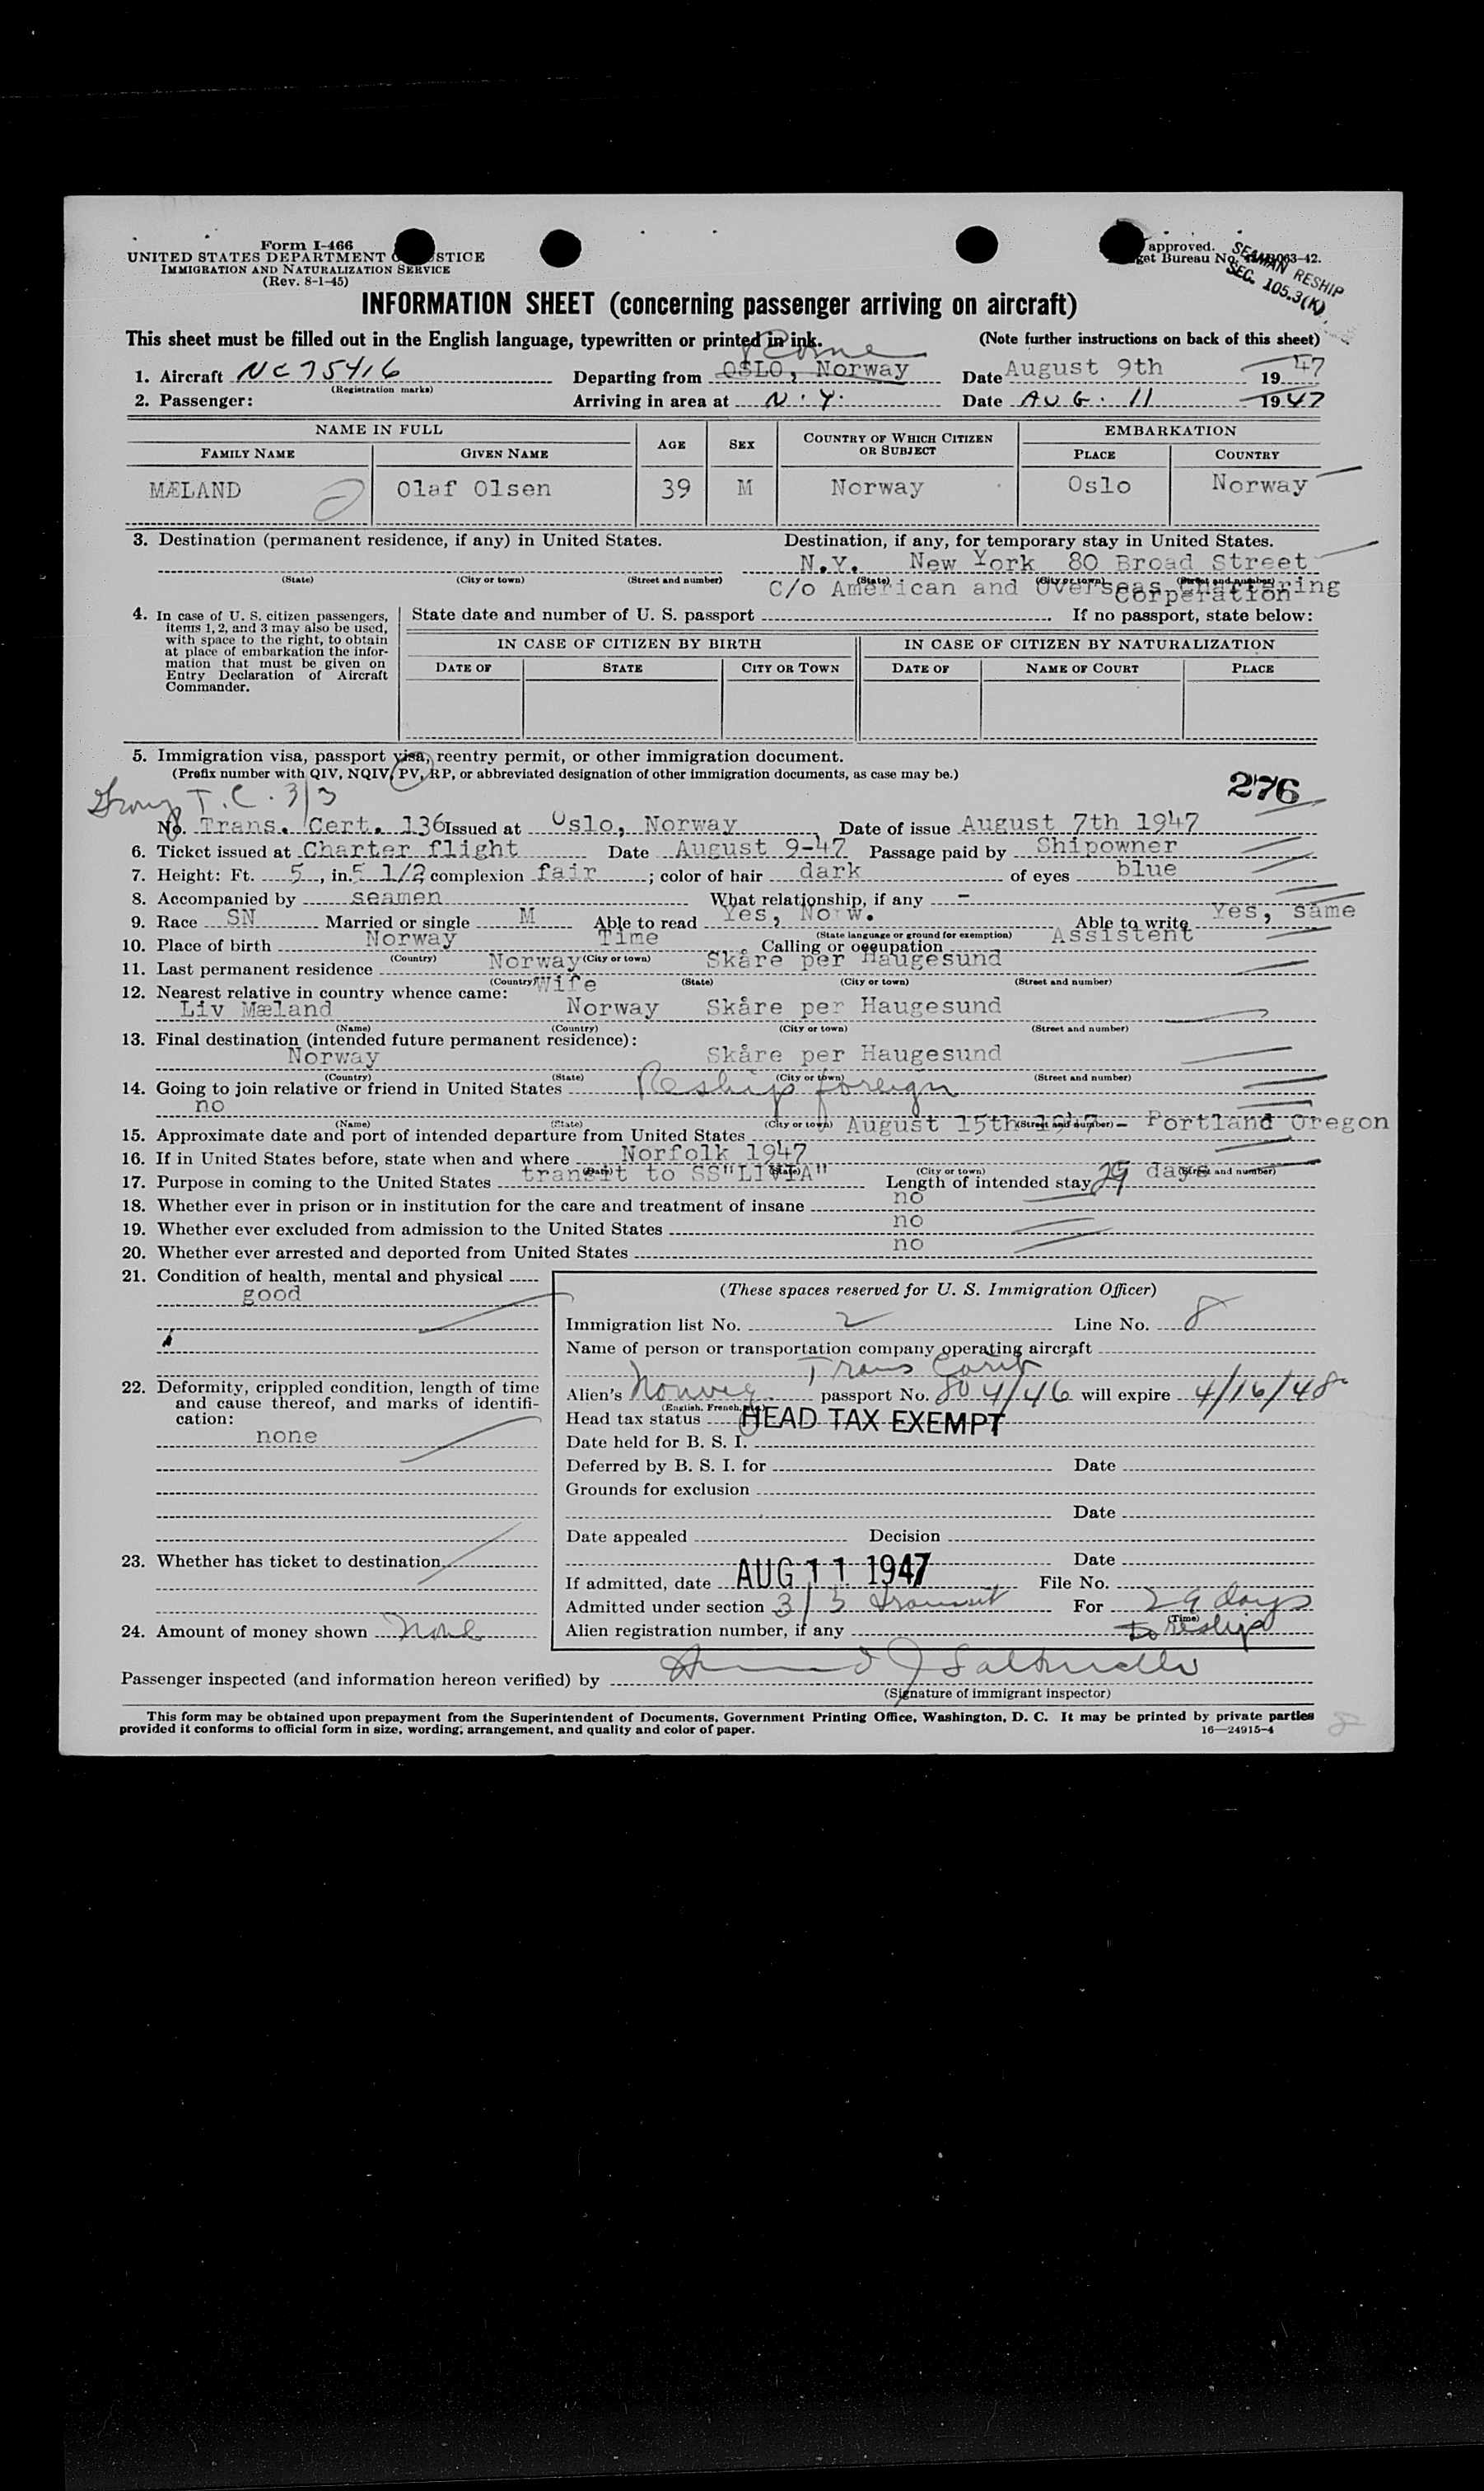 Form I-466
UNITED STATES DEPARTMENT STICE
IMMIGRATION AND NATURALIZATION SERVICE
(Rev. 8-1-45)
approved.
get Bureau No. 063-42.
SEAMAN RESHIP
SEC. 105.3(K)
INFORMATION SHEET (concerning passenger arriving on aircraft)
This sheet must be filled out in the English language, typewritten or printed in ink. (Note further instructions on back of this sheet)
1. Aircraft NC75416 Departing from OSLO, Norway Date August 9th 1947
(Registration marks)
2. Passenger: Arriving in area at N.Y. Date AUG. 11 1947
NAME IN FULL AGE SEX COUNTRY OF WHICH CITIZEN OR SUBJECT EMBARKATION
FAMILY NAME GIVEN NAME PLACE COUNTRY
MÆLAND Olaf Olsen 39 M Norway Oslo Norway
3. Destination (permanent residence, if any) in United States. Destination, if any, for temporary stay in United States.
N.Y. New York 80 Broad Street
(State) (City or town) (Street and number) (State) (City or town) (Street and number)
C/o American and Overseas Chartering
Corperation
4. In case of U. S. citizen passengers, items 1, 2, and 3 may also be used, with space to the right, to obtain at place of embarkation the information that must be given on Entry Declaration of Aircraft Commander.
State date and number of U. S. passport . If no passport, state below:
IN CASE OF CITIZEN BY BIRTH IN CASE OF CITIZEN BY NATURALIZATION
DATE OF STATE CITY OR TOWN DATE OF NAME OF COURT PLACE
5. Immigration visa, passport visa, reentry permit, or other immigration document.
(Prefix number with QIV, NQIV, PV, RP, or abbreviated designation of other immigration documents, as case may be.)
276
T.C. 3/3
No. Trans. Cert. 136 Issued at Oslo, Norway, Date of issue August 7th 1947
6. Ticket issued at Charter flight Date August 9-47 Passage paid by Shipowner
7. Height: Ft. 5, in. 5 1/2 complexion fair; color of hair dark of eyes blue
8. Accompanied by seamen What relationship, if any -
9. Race SN Married or single M Able to read Yes, Norw. Able to write Yes, same
(State language or ground for exemption)
10. Place of birth Norway Time Calling or occupation Assistent
(Country) (City or town)
11. Last permanent residence Norway Skåre per Haugesund
(Country) (State) (City or town) (Street and number)
12. Nearest relative in country whence came: Wife
Liv Mæland Norway Skåre per Haugesund
(Name) (Country) (City or town) (Street and number)
13. Final destination (intended future permanent residence):
Norway Skåre per Haugesund
(Country) (State) (City or town) (Street and number)
14. Going to join relative or friend in United States Reship foreign
no
(Name) (State) (City or town) (Street and number)
15. Approximate date and port of intended departure from United States August 15th 1947 - Portland Oregon
16. If in United States before, state when and where Norfolk 1947
(Date) (State) (City or town) (Street and number)
17. Purpose in coming to the United States transit to SS"LIVIA" Length of intended stay 29 days
18. Whether ever in prison or in institution for the care and treatment of insane no
19. Whether ever excluded from admission to the United States no
20. Whether ever arrested and deported from United States no
21. Condition of health, mental and physical
good
22. Deformity, crippled condition, length of time and cause thereof, and marks of identification:
none
23. Whether has ticket to destination
24. Amount of money shown None
(These spaces reserved for U. S. Immigration Officer)
Immigration list No. 2 Line No. 8
Name of person or transportation company operating aircraft
Trans Carib
Alien's Norweg. passport No. 804/46 will expire 4/16/48
(English, French, etc.)
Head tax status HEAD TAX EXEMPT
Date held for B. S. I.
Deferred by B. S. I. for Date
Grounds for exclusion
Date
Date appealed Decision
Date
If admitted, date AUG 11 1947 File No.
Admitted under section 3/3 transit For 29 days
(Time)
Alien registration number, if any to Reship
Passenger inspected (and information hereon verified) by
(Signature of immigrant inspector)
This form may be obtained upon prepayment from the Superintendent of Documents, Government Printing Office, Washington, D. C. It may be printed by private parties
provided it conforms to official form in size, wording, arrangement, and quality and color of paper. 16—24915-4